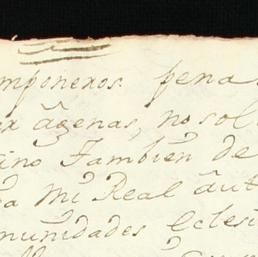 mponeros pena
ágenas, no sol
ino Tambien de
a mi Real áut
munidades Eclesi